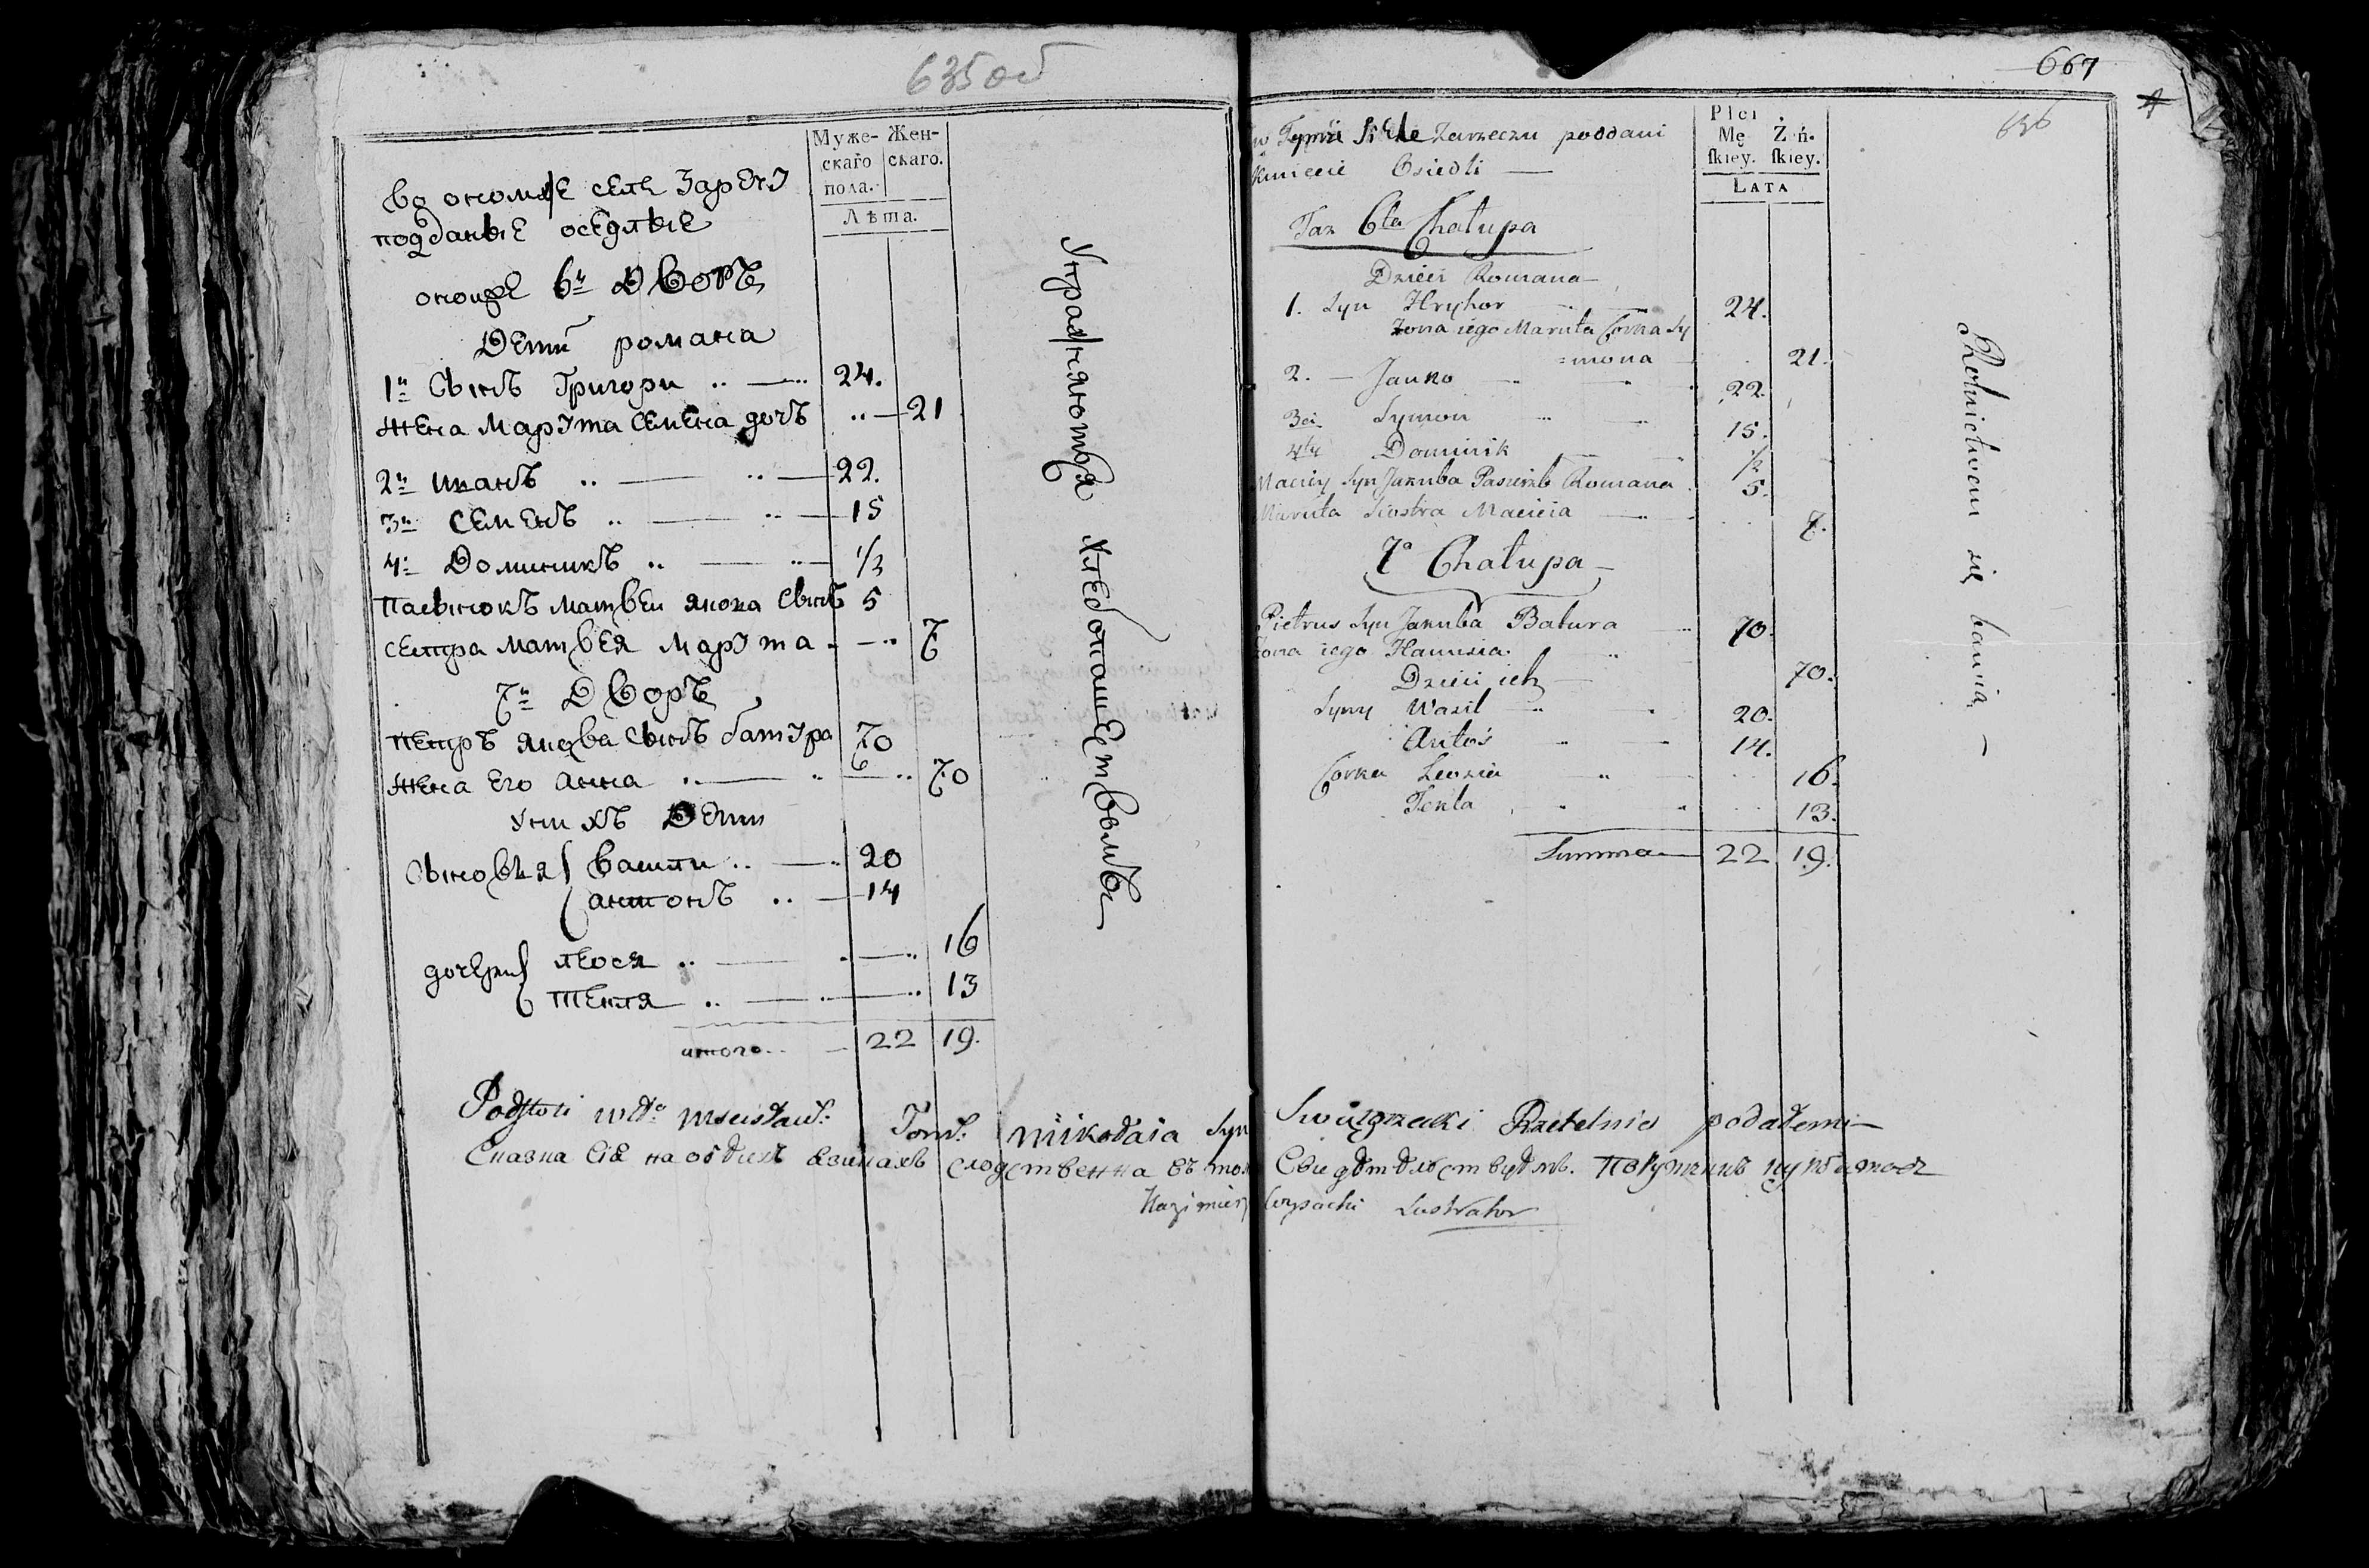 635об
Муже- Жен-
скаго скаго.
пола.
Лѣта.
во ономже селе Заречу
подданые оседлые
оной же 6й Дворъ
Дети романа
1й Сынъ Григори 24.
жена Марута семена дочъ 21
2й иванъ 22.
3й семенъ 15
4й Доминикъ 1/2
Пасынокъ матвеи якова сынъ 5
сестра матвея марута 7
7й Дворъ
петръ якова сынъ батура 70
жена его анна 70
у них Дети
Сыновья васили 20
антонъ 14
дочери леося 16
текля 13
итого 22 19.
Упражняются хлебопашествомъ
Podstoli wdа Mscisław: Tom: Mikołaia Syn Swięrzecki Rzetelnie podałem
Сказка сія на обоихъ языкахъ сходственна въ том Свидѣтельствуемъ.
Kazimierz Wysocki Lustrator
667
636
Płci
Mę Ż ń.
ſkiey. ſkiey.
Lata
w Tymże Siele Zarzeczu poddani
Kmiecie Osiedli
Taż 6ta Chałupa
Dzieci Romana
1. Syn Hryhor 24.
Żona iego Maruta Corka Sy
=mona 21.
2. Janko 22.
3ci Symon 15.
4ty Dominik 1/2
Maciey Syn Jakuba Pasierb Romana 5.
Maruta Siostra Macieia 7.
7a Chałupa
Pietruś Syn Jakuba Batura 70.
Żona iego Hannsia 70.
Dzieci ich
Syny Wasil 20.
Antoś 14.
Corka Leosia 16.
Tekla 13.
Summa 22 19.
Rolnictwem się bawią